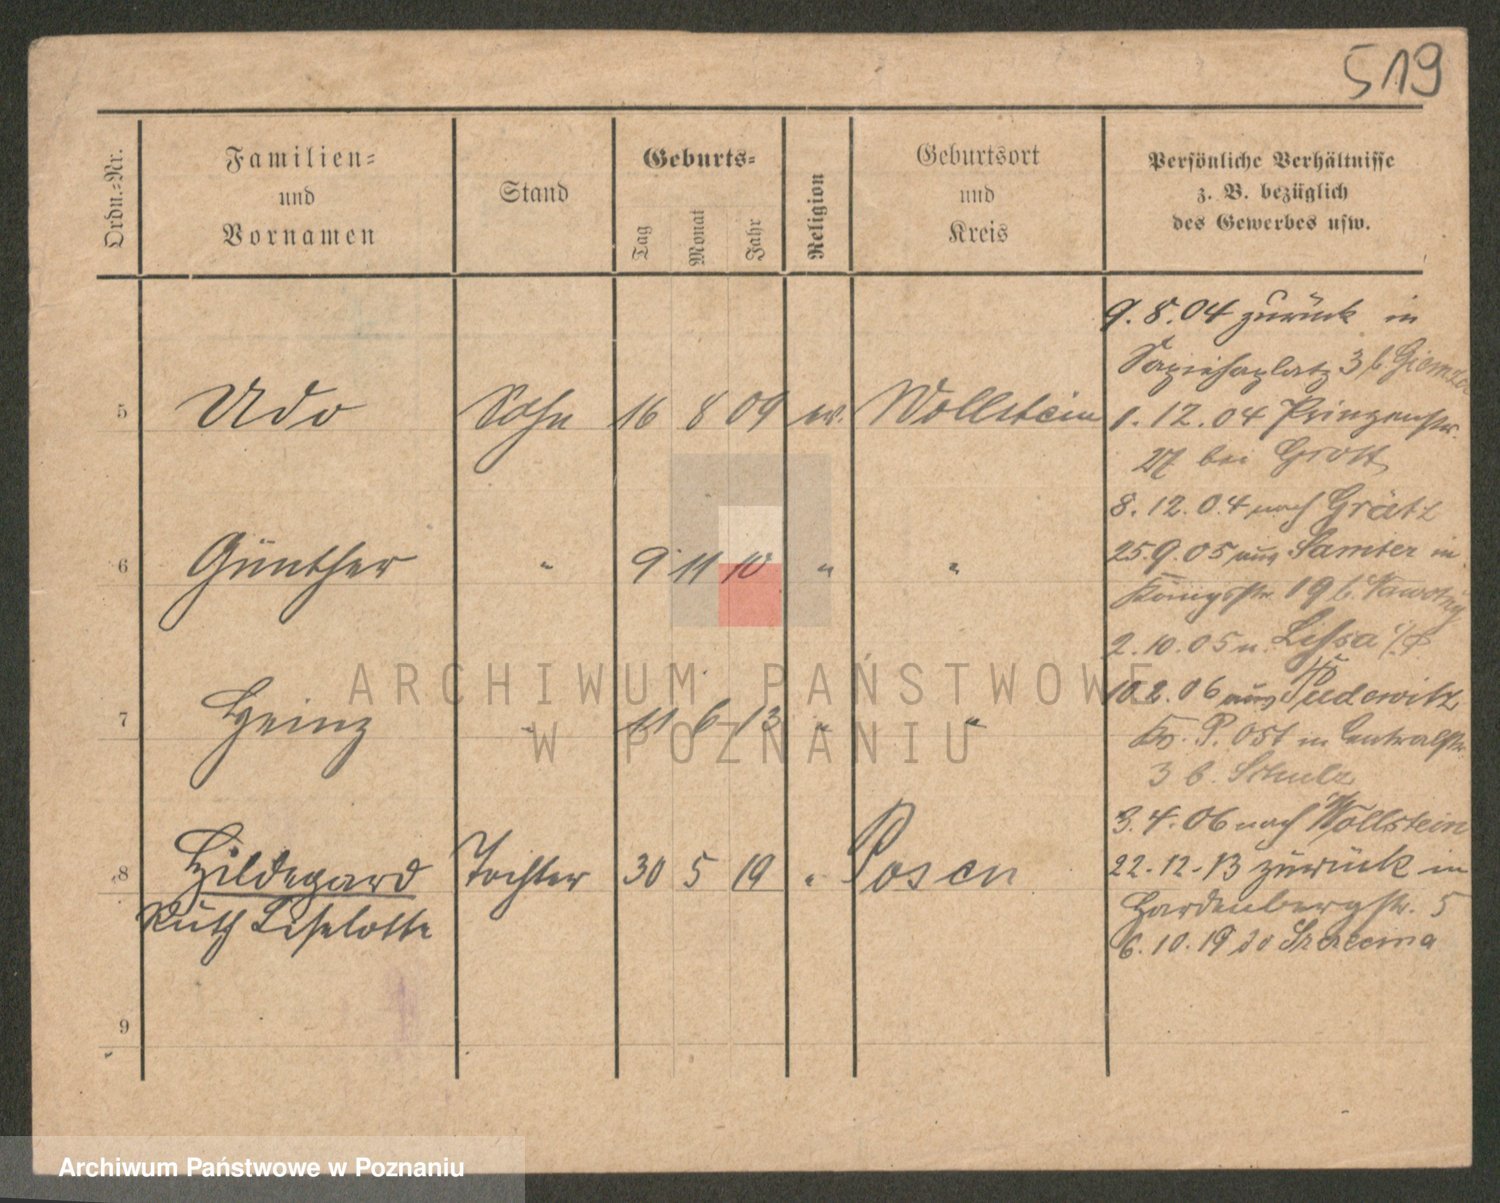 519
Ordn.-Nr.
Familien-
und
Vornamen
Stand
Geburts-
Tag
Monat
Jahr
Religion
Geburtsort
und
Kreis
Persönliche Verhältnisse
z. B. bezüglich
des Gewerbes usw.
5 Udo Sohn 16 8 09 ev. Wollstein
6 Günther " 9 11 10 " "
7 Heinz " 11 6 13 " "
8 Hildegard Tochter 30 5 19 " Posen
Ruth Liselotte
9
9.8.04 zurück in
Sapiehaplatz 3 b.
1.12.04 Prinzenstr.
27 bei Grott
8.12.04 nach Grätz
25.9.05 aus Samter in
Königstr. 19 b. Nawotny
2.10.05 n. Lissa i/P
10.2.06 aus Pudewitz
Kr. P. Ost in Centralstr.
3 b. Schulz
3.4.06 nach Wollstein
22.12.13 zurück in
Hardenbergstr. 5
6.10.19 do
ARCHIWUM PAŃSTWOWE
W POZNANIU
Archiwum Państwowe w Poznaniu